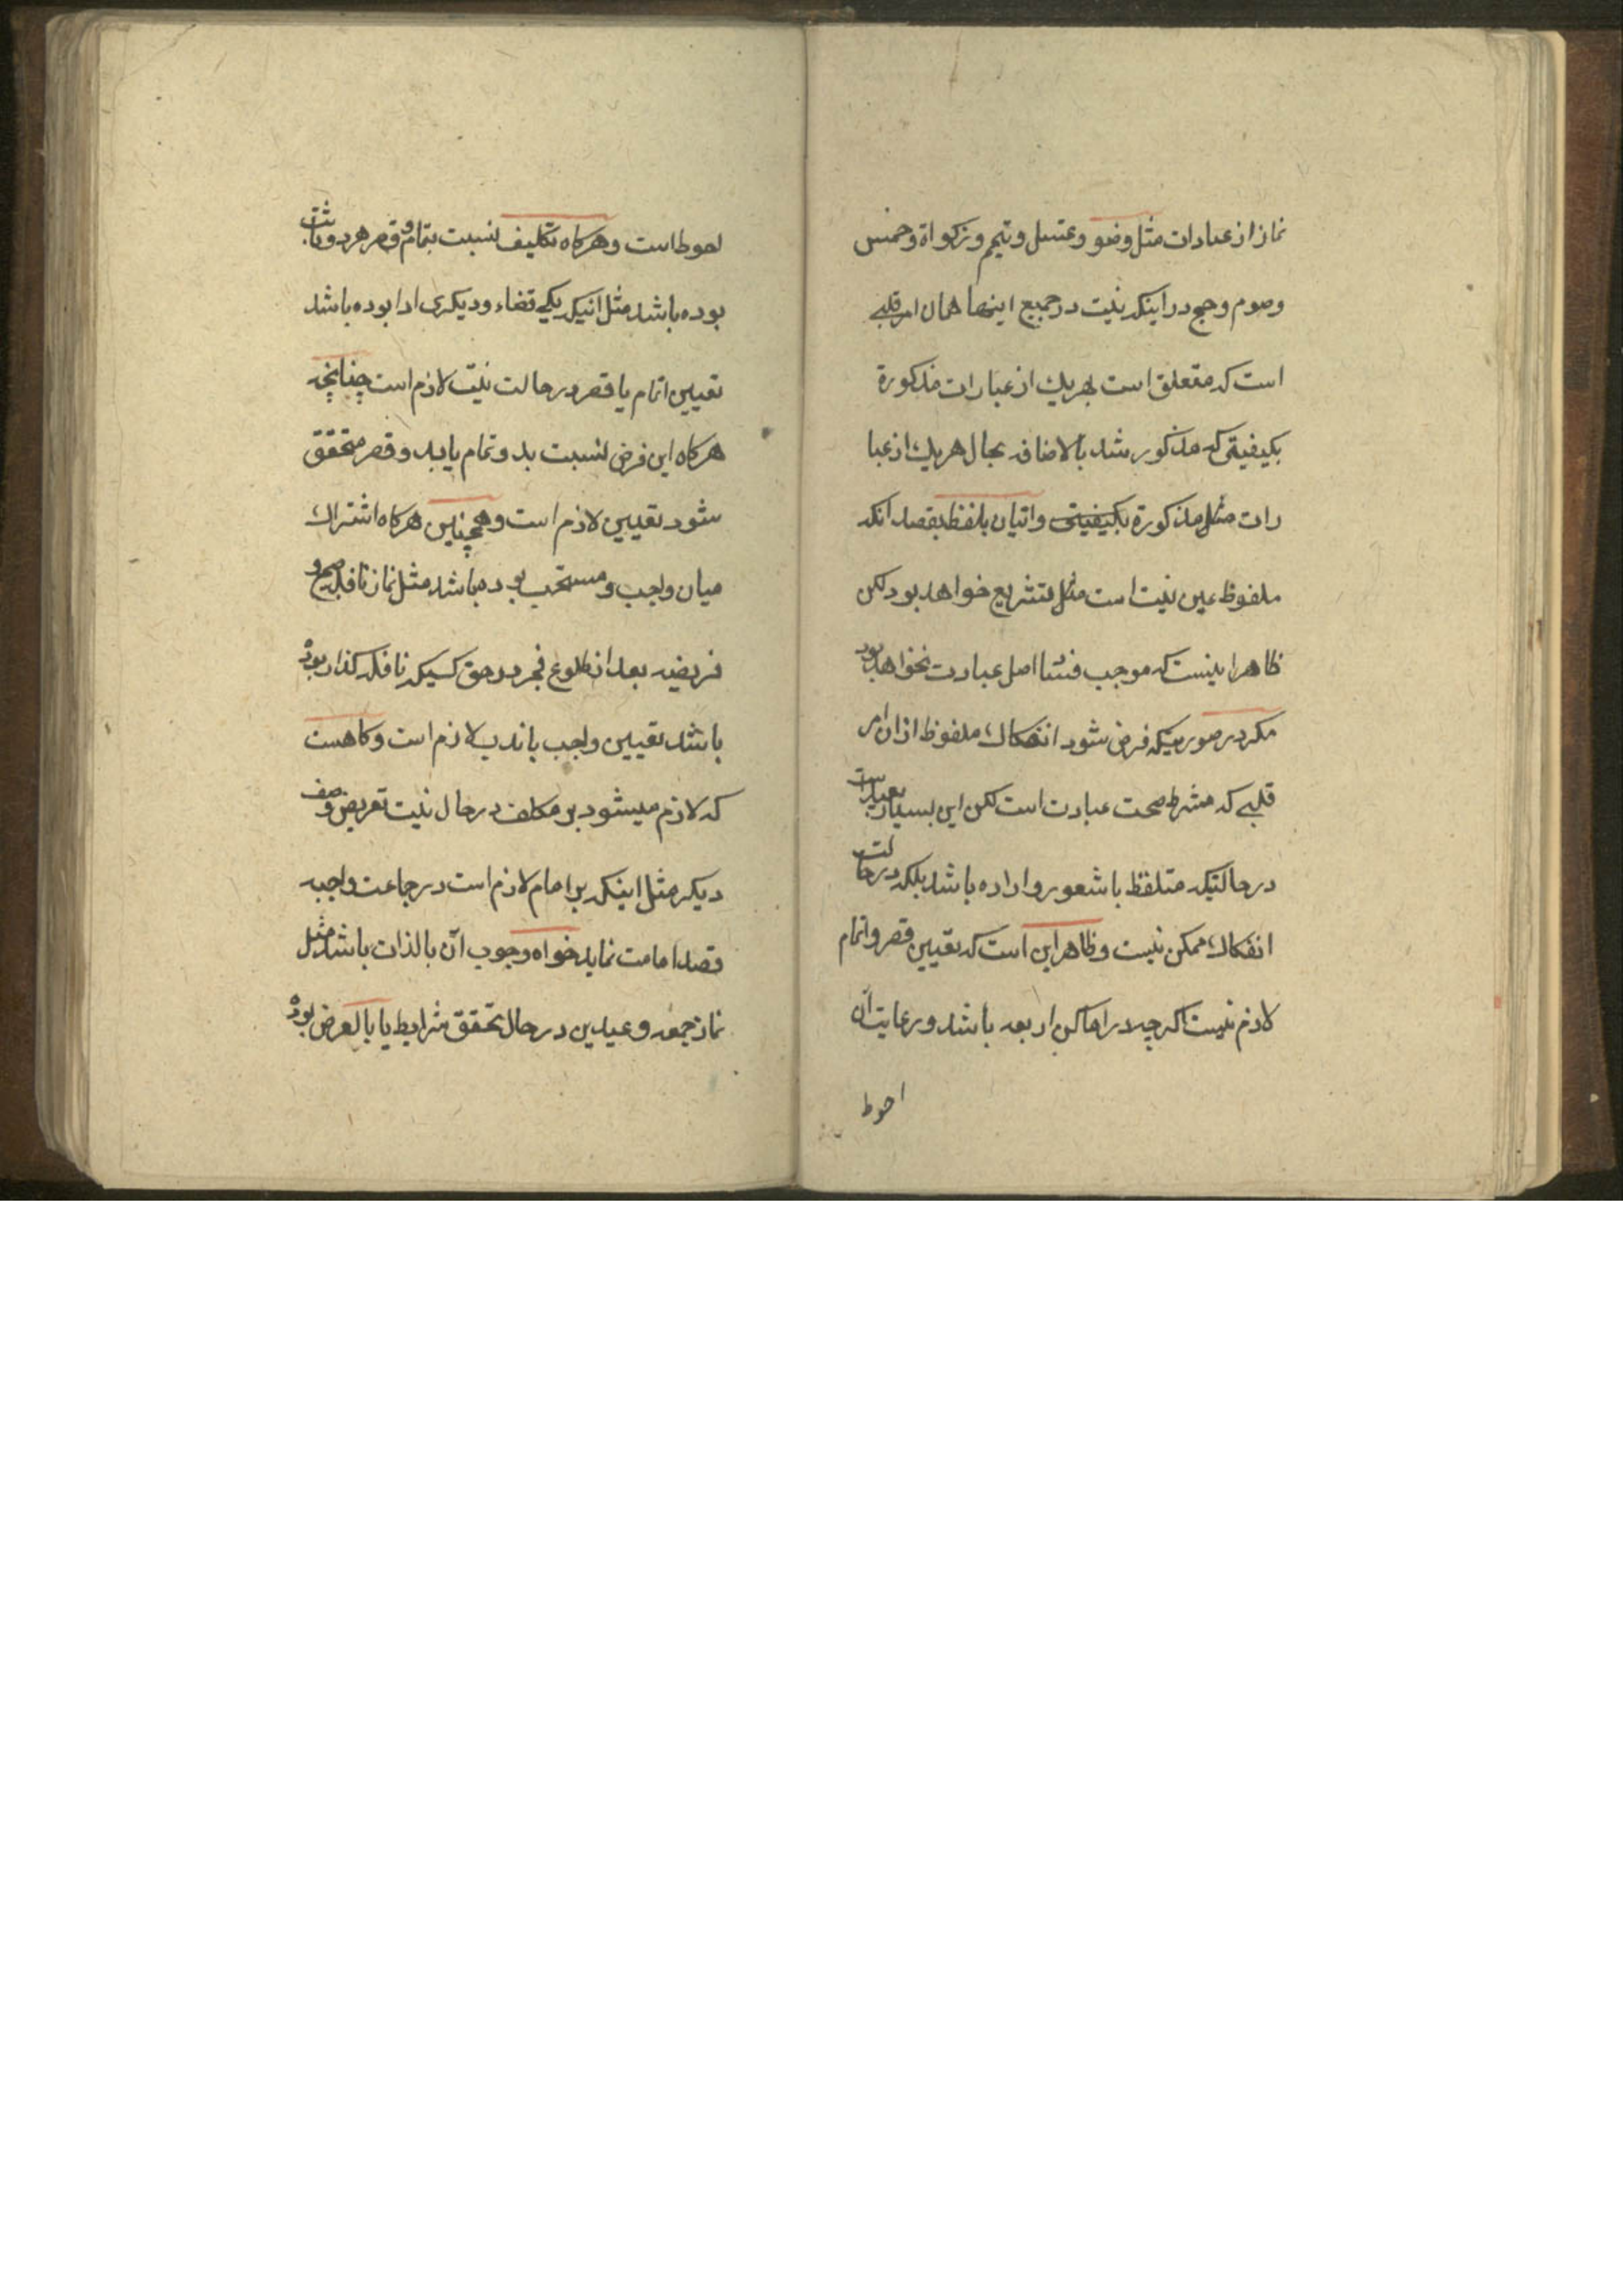 نماز از عبادات مثل وضو و غسل و تیمم و زکواة و خمس
و صوم و حج در اینکه نیت در جمیع اینها همان امر قلبے
است که متعلق است بهریك از عبارات مذکورة
بکیفیتی که مذکور شد بالاضافه بحال هریك از عبا
رات مثل مذکورة بکیفیتی و اتیان بلفظ بقصد انکه
ملفوظ عین نیت است مثل تشریع خواهد بود لکن
ظاهر اینست که موجب فساد اصل عبادت نخواهد بود
مکر در صورتیکه فرض شود انفکاك ملفوظ از ان امر
قلبے که شرط صحت عبادت است لکن این بسیار بعید است
در حالتیکه متلفظ باشعور و اراده باشد بلکه در حالت
انفکاك ممکن نیست و ظاهر این است که تعیین قصر و اتمام
لازم نیست اکرچه در اماکن اربعه باشد و رعایت آن
احوط
احوط است و هرکاه تکلیف نسبت بتمام و قصر هر دو ثابت
بوده باشد مثل انیکه یکے قضاء و دیکری ادا بوده باشد
تعیین اتمام یا قصر در حالت نیت لازم است چنانچه
هرکاه این فرض نسبت بدو تمام یا بدو قصر متحقق
شود تعیین لازم است و همچنین هرکاه اشتراك
میان واجب و مستحب بوده باشد مثل نماز نافله صبح و
فریضه بعد از طلوع فجر در حق کسیکه نافله کذار بوده
باشد تعیین واجب یا ندب لازم است و کاهست
که لازم میشود بر مکلف در حال نیت تعریض وصف
دیکر مثل اینکه بر امام لازم است در جماعت واجبه
قصد امامت نماید خواه وجوب آن بالذات باشد مثل
نماز جمعه و عیدین در حال تحقق شرایط یا بالعرض بوده